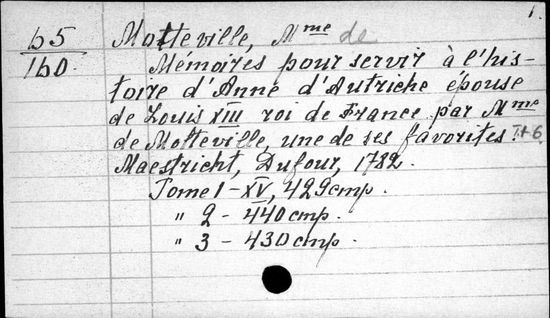 1.
65 Motteville, Mme de
160 Mémoires pour servir à l'his-
toire d'Anne d'Autriche épouse
de Louis XIII roi de France par Mme
de Motteville, une de ses favorites. T. 1-6.
Maestricht, Dufour, 1782.
Tome 1 - XV, 429 cmp.
" 2 - 440 cmp.
" 3 - 430 cmp.